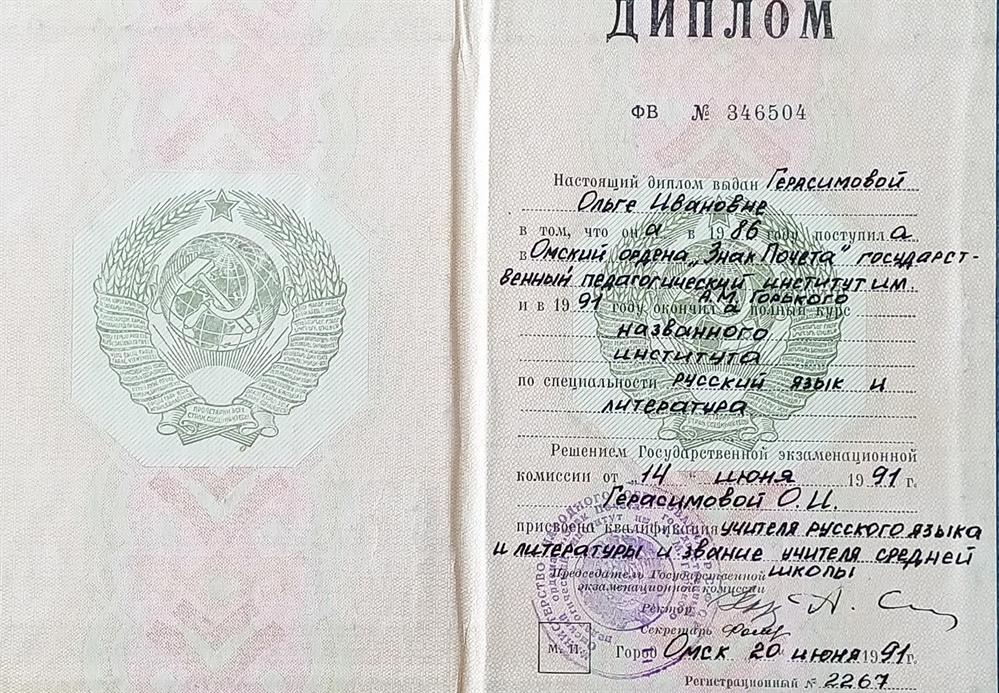 ДИПЛОМ
ФВ № 346504
Настоящий диплом выдан Герасимовой
Ольге Ивановне
в том, что она в 1986 году поступила
в Омский ордена „Знак Почета" государст-
венный педагогический институт им.
А.М. Горького
и в 1991 году окончила полный курс
названного
института
по специальности русский язык и
литература
Решением Государственной экзаменационной
комиссии от „14" июня 1991 г.
Герасимовой О.И.
присвоена квалификация учителя русского языка
и литературы и звание учителя средней
школы
Председатель Государственной
экзаменационной комиссии
Ректор
Секретарь
М. П.
Город Омск 20 июня 1991 г.
Регистрационный № 2267